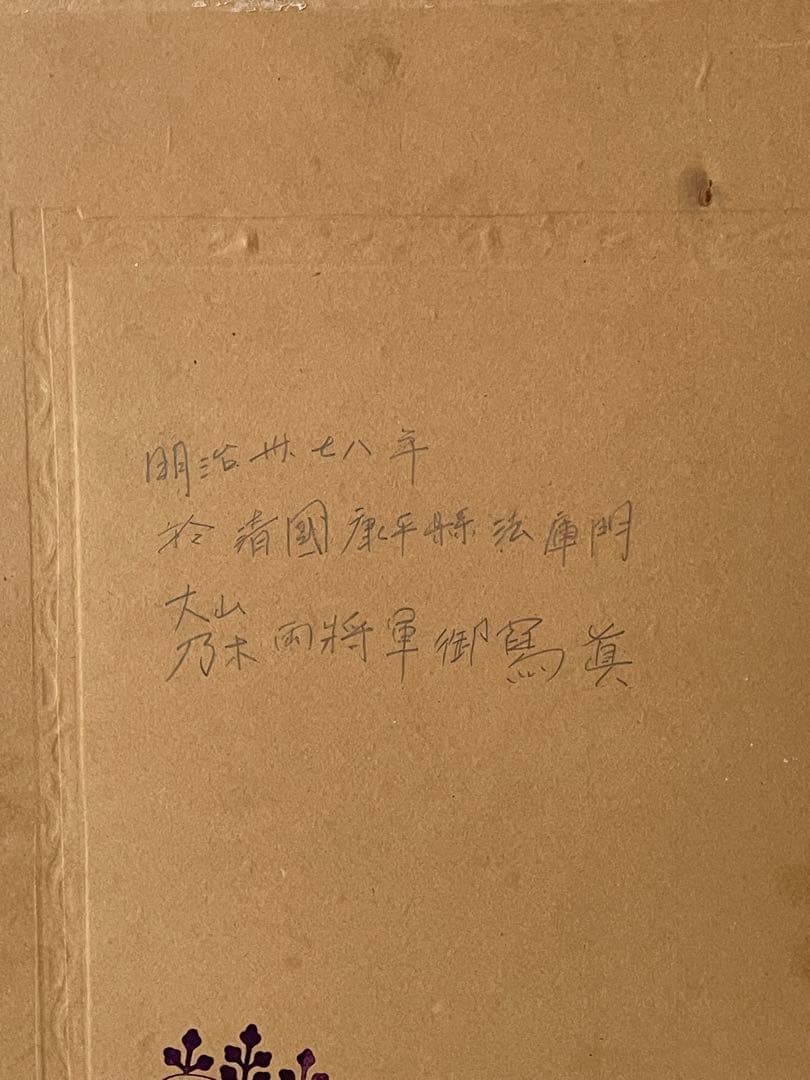 明治卅七八年
於清國康平縣法庫門
大山
乃木両將軍御寫眞